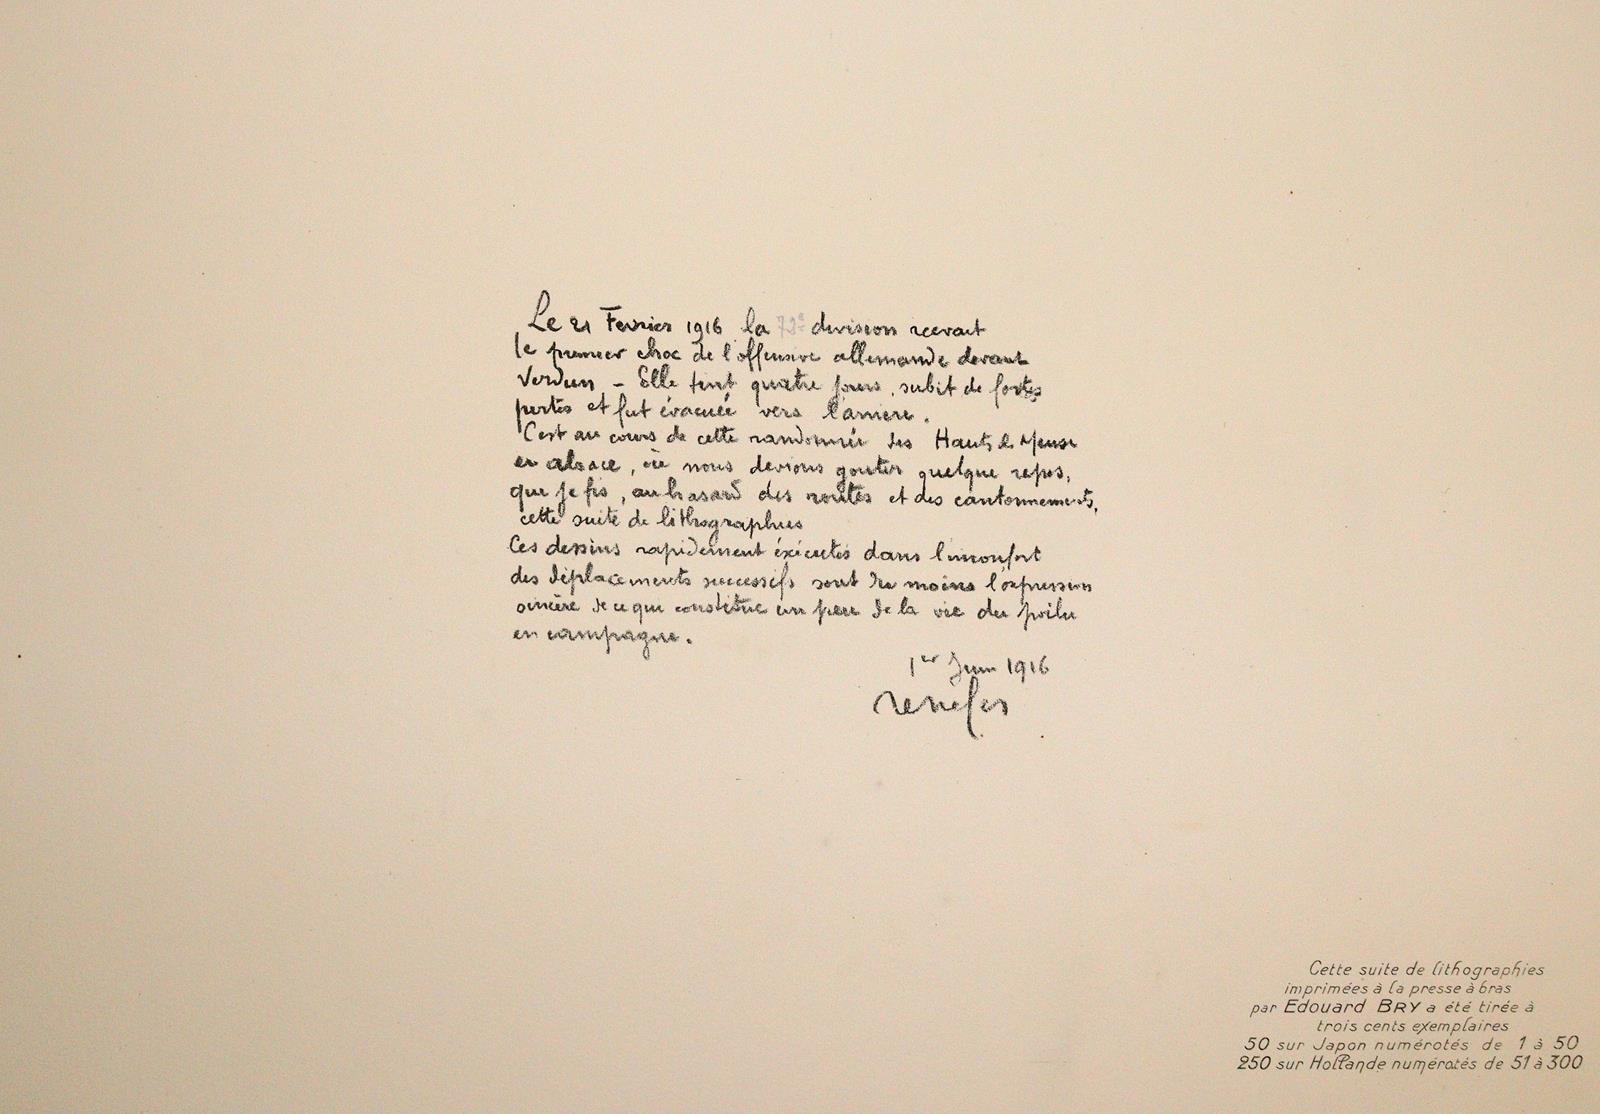 Le 21 Fevrier 1916 la 72e division recevait
le premier choc de l'offensive allemande devant
Verdun – Elle tint quatre jours, subit de fortes
pertes et fut évacuée vers l'arriere.
C'est au cours de cette randonnée des Hauts de Meuse
en alsace, où nous devions gouter quelque repos,
que je fis, au hasard des routes et des cantonnements,
cette suite de lithographies
Ces dessins rapidement éxécutés dans l'inconfort
des déplacements successifs sont du moins l'expression
sincère de ce qui constitue un peu de la vie du poilu
en campagne.
1er Juin 1916
renefer
Cette suite de lithographies
imprimées à la presse à bras
par Edouard BRY a été tirée à
trois cents exemplaires
50 sur Japon numérotés de 1 à 50
250 sur Hollande numérotés de 51 à 300